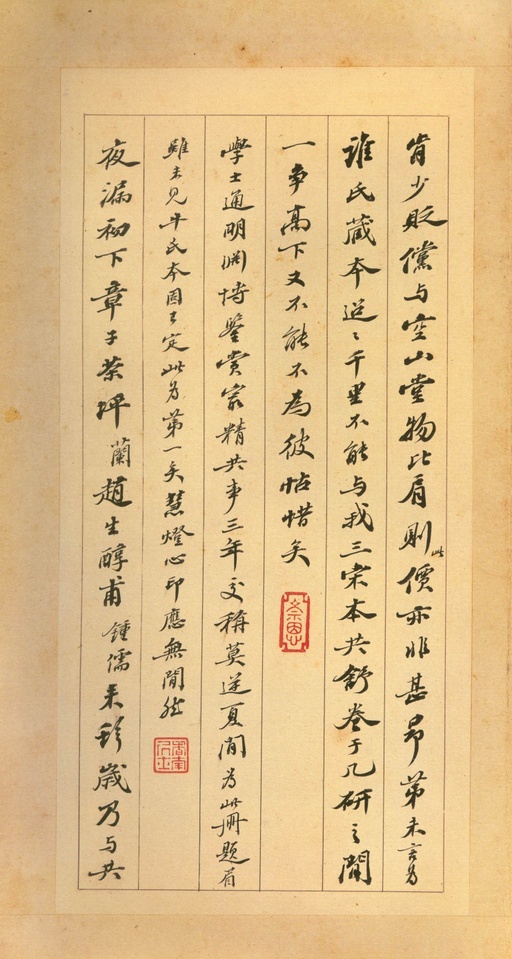 肯少貶儻與空山堂物比肩則此價亦非甚昂第未言為
誰氏藏本迢〻千里不能與我三宋本共舒卷于几研之間
一爭高下又不能不為彼帖惜矣
崇恩
學士通明淵博鑒賞精共事三年交稱莫逆夏間為此冊題眉
雖未見牛氏本固已定此為第一矣慧燈心印應無間然
夜漏初下章子坪蘭趙生醇甫鍾儒來歲乃與共